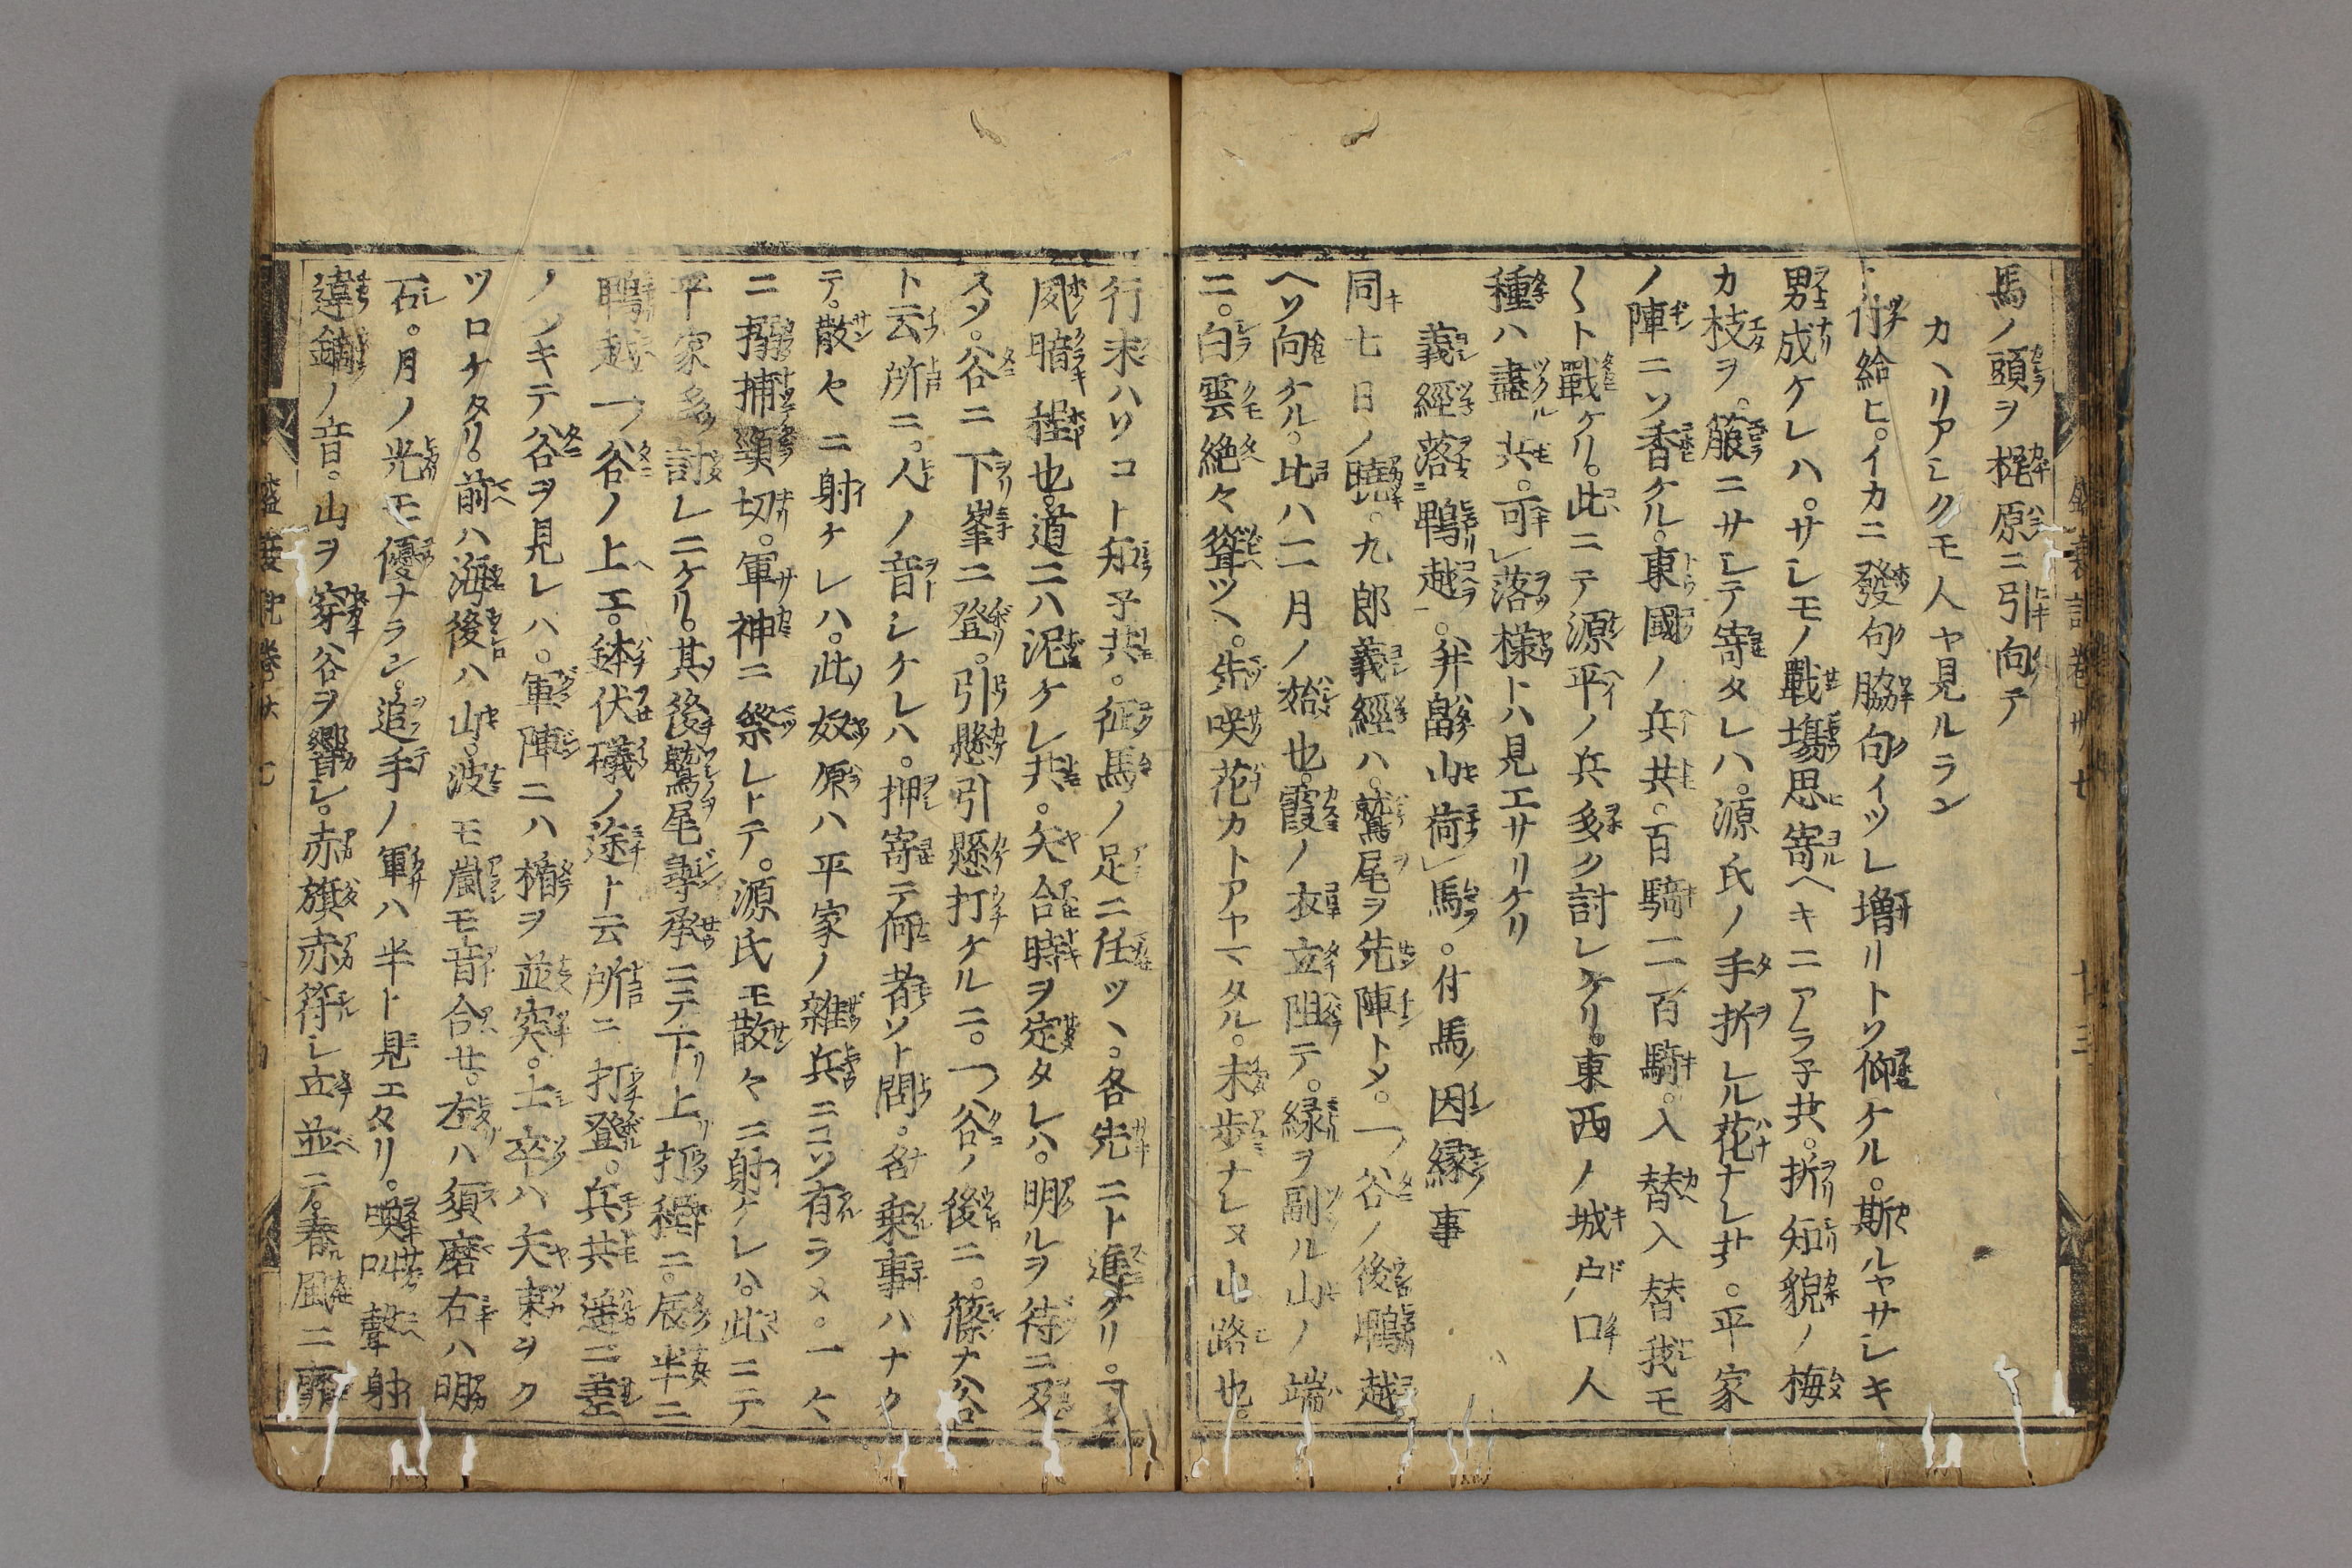 馬ノ頭ヲ梶原ニ引向テ
カヘリアシクモ人ヤ見ルラン
ト付給ヒ。イカニ發句脇句イツレ増リトソ仰ケル。斯ルヤサシキ
男成ケレハ。サレモノ戰場思寄ヘキニアラ子共。折知貌ノ梅
カ枝ヲ。箙ニサレテ寄タレハ。源氏ノ手折レル花ナレ共。平家
ノ陣ニソ香ケル。東國ノ兵共。百騎二百騎。入替入替我モ
〱ト戰ケリ。此ニテ源平ノ兵多ク討レケリ。東西ノ城戸口人
種ハ盡共。可落様トハ見エサリケリ
義經落鵯越。并畠山荷馬。付馬因縁事
同七日ノ曉。九郎義經ハ。鷲尾ヲ先陣トメ。一ノ谷ノ後鵯越
ヘソ向ケル。比ハ二月ノ始也。霞ノ衣立阻テ。緑ヲ副ル山ノ端
ニ。白雲絶々聳ツヽ。先咲花カトアヤマタル。未歩ナレヌ山路也。
行末ハソコト知子共。征馬ノ足ニ任ツヽ。各先ニト進ケリ。
夙暗程也。道ニハ泥ケレ共。矢合時ヲ定タレハ。明ルヲ待ニ及
スソ。谷ニ下峯ニ登。引懸引懸打ケルニ。一ツ谷ノ後ニ。篠ナ谷
ト云所ニ。人ノ音シケレハ。押寄テ何者ソト問。名乗事ハナク
テ。散々ニ射ケレハ。此奴原ハ平家ノ雜兵ニコソ有ラメ。一々
ニ搦捕頸切。軍神ニ祭レトテ。源氏モ散々ニ射ケレハ。此ニテ
平家多討レニケリ。其後鷲尾尋承ニテ下上打程ニ。辰半ニ
鵯越一ツ谷ノ上エ。鉢伏礒ノ途ト云所ニ打登。兵共遥ニ差
ノソキテ谷ヲ見レハ。軍陣ニハ楯ヲ並突。士卒ハ矢束ヲク
ツロケタリ。前ハ海後ハ山。波モ嵐モ音合せ。左ハ須磨右ハ明
石。月ノ光モ優ナラン。追手ノ軍ハ半ト見エタリ。喚叫聲射
違鏑ノ音。山ヲ穿谷ヲ響シ。赤旗赤符シ立並テ。春風ニ靡